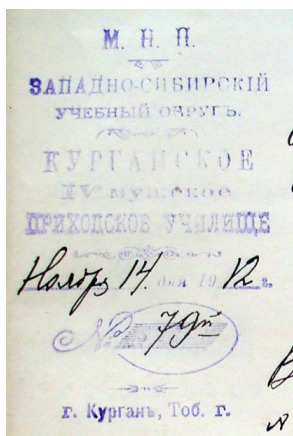 М. Н. П.
ЗАПАДНО-СИБИРСКІЙ
УЧЕБНЫЙ ОКРУГЪ.
КУРГАНСКОЕ
IV МУЖСКОЕ
ПРИХОДСКОЕ УЧИЛИЩЕ
Ноября 14 дня 1912 г.
№ 79й
г. Курганъ, Тоб. г.